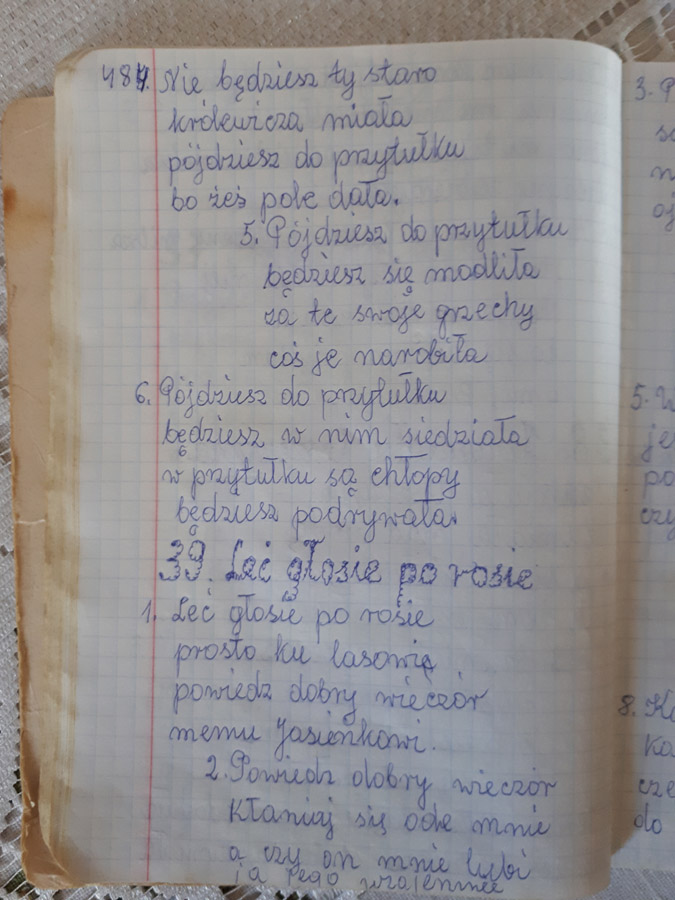 484. Nie będziesz ty staro
królewicza miała
pójdziesz do przytułku
bo żeś pole dała.
5. Pójdziesz do przytułku
będziesz się modliła
za te swoje grzechy
coś je narobiła
6. Pójdziesz do przytułku
będziesz w nim siedziała
w przytułku są chłopy
będziesz podrywała.
39. Leć głosie po rosie
1. Leć głosie po rosie
prosto ku lasowi
powiedz dobry wieczór
memu Jasieńkowi.
2. Powiedz dobry wieczór
kłaniaj się ode mnie
a czy on mnie lubi
ja jego wzajemnie
3.
5. W
je
po
czy
8.
do